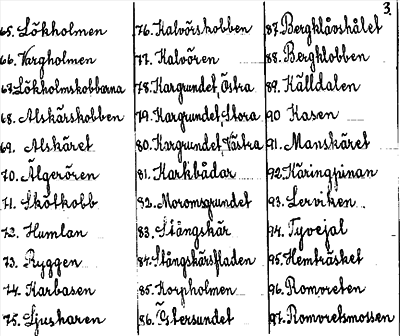 3.
65. Lökholmen
66. Vargholmen
67. Lökholmskobbarna
68. Alskärskobben
69. Alskäret
70. Älgerören
71. Skötkobb
72. Humlan
73. Ryggen
74. Karbasen
75. Ljusharen
76. Kalvörskobben
77. Kalvören
78. Kargrundet, Östra
79. Kargrundet, Stora
80. Kargrundet, Västra
81. Karkbådar
82. Moromsgrundet
83. Stångskär
84. Stångskärsfladen
85. Korpholmen
86. Östersundet
87. Bergklåvshålet
88. Bergklobben
89. Källdalen
90 Kasen
91. Manskäret
92. Käringpinan
93. Lerviken
94. Tyvejal
95. Hemträsket
96. Romvreten
97. Romvretsmossen